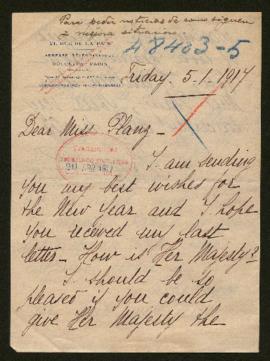 Para pedir noticias de como siguen
y mejora situación.
48403-5
21, RUE DE LA PAIX
PARIS
Friday, 5.1.1917
Dear Miss Plang -
I am sending
you my best wishes for
the New Year and I hope
you received my last
letter - How is Her Majesty?
I should be so
pleased if you could
give Her Majesty the